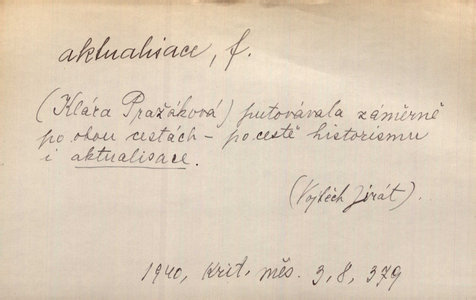 aktualisace, f.
(Klára Pražáková) putovávala záměrně
po obou cestách – po cestě historismu
i aktualisace.
(Vojtěch Jirát).
1940, Krit. měs. 3, 8, 379